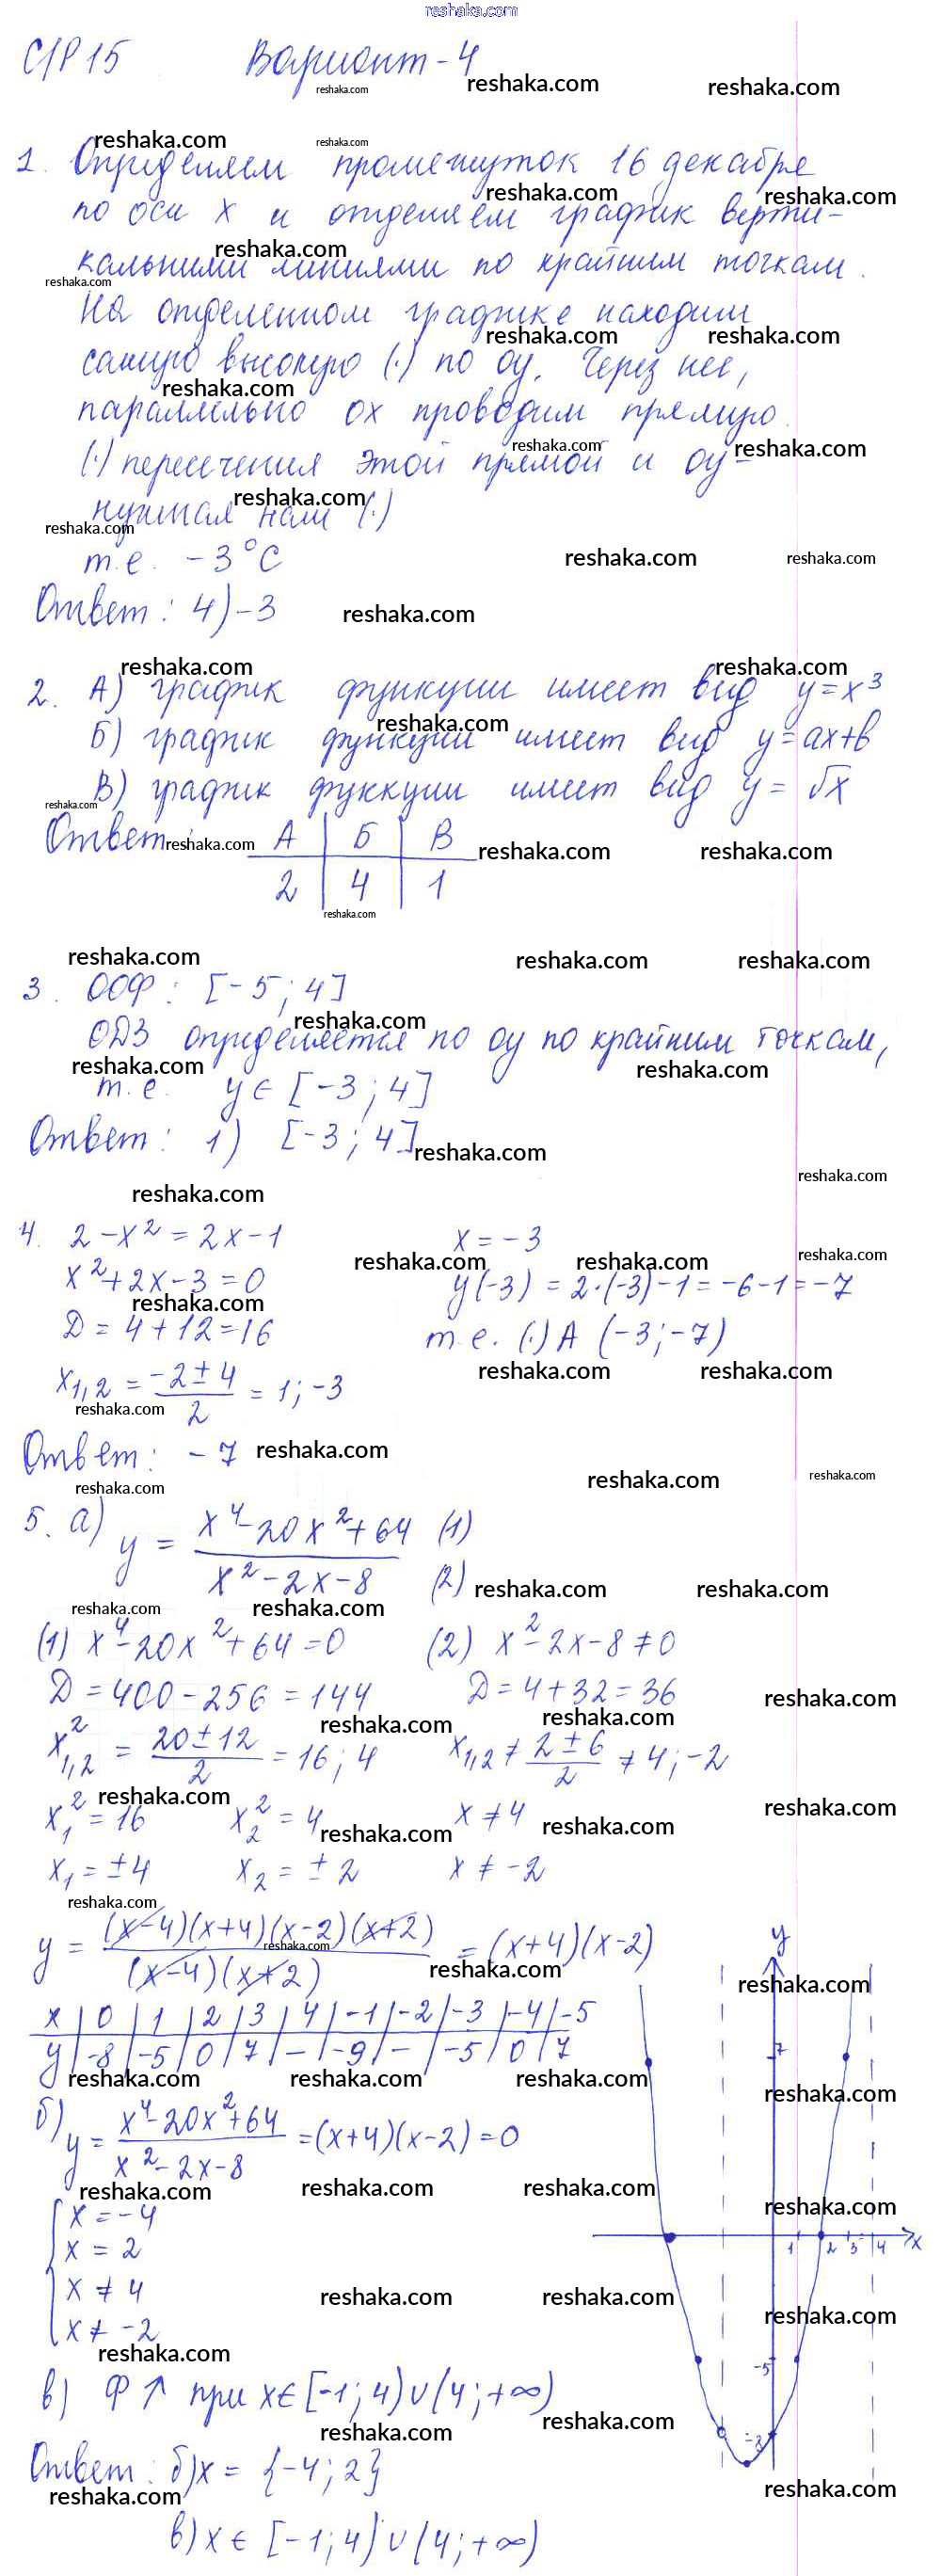 reshaka.com
С/Р 15 Вариант-4
1. Определяем промежуток 16 декабря
по оси x и отделяем график верти-
кальными линиями по крайним точкам.
На определенном графике находим
самую высокую (·) по oy. Через нее,
параллельно ox проводим прямую.
(·) пересечения этой прямой и oy -
нужная нам (·)
т.е. -3°C
Ответ: 4) -3
2. А) график функции имеет вид y=x³
Б) график функции имеет вид y=ax+b
В) график функции имеет вид y=√x
Ответ: А | Б | В
2 | 4 | 1
3. ООФ: [-5; 4]
ОДЗ определяется по oy по крайним точкам,
т.е. y∈[-3; 4]
Ответ: 1) [-3; 4]
4. 2-x²=2x-1 x=-3
x²+2x-3=0 y(-3)=2·(-3)-1=-6-1=-7
Д=4+12=16 т.е. (·) А (-3;-7)
x₁,₂=(-2±4)/2=1;-3
Ответ: -7
5. а) y=(x⁴-20x²+64)/(x²-2x-8) (1) (2)
(1) x⁴-20x²+64=0 (2) x²-2x-8≠0
Д=400-256=144 Д=4+32=36
x²₁,₂=(20±12)/2=16; 4 x₁,₂≠(2±6)/2≠4;-2
x₁²=16 x₂²=4 x≠4
x₁=±4 x₂=±2 x≠-2
y=((x-4)(x+4)(x-2)(x+2))/((x-4)(x+2))=(x+4)(x-2)
x | 0 | 1 | 2 | 3 | 4 | -1 | -2 | -3 | -4 | -5
y | -8 | -5 | 0 | 7 | - | -9 | - | -5 | 0 | 7
б) y=(x⁴-20x²+64)/(x²-2x-8)=(x+4)(x-2)=0
x=-4
x=2
x≠4
x≠-2
y
7
1 2 3 4 x
-5
в) Ф↑ при x∈[-1; 4)∪(4;+∞)
Ответ: б) x={-4; 2}
в) x∈[-1; 4)∪(4;+∞)